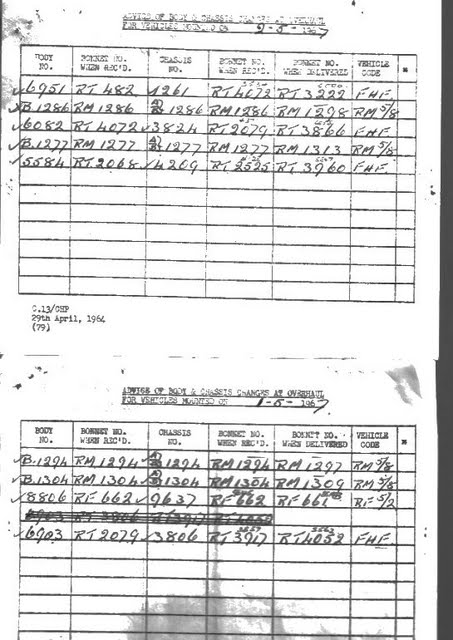 ADVICE OF BODY & CHASSIS CHANGES AT OVERHAUL
FOR VEHICLES MOUNTED ON 2-5-1967
BODY NO. BONNET NO. WHEN REC'D. CHASSIS NO. BONNET NO. WHEN REC'D. BONNET NO. WHEN DELIVERED VEHICLE CODE
6951 RT 482 1261 RT 4672 RT 3222 FHF.
B.1286 RM 1286 1286 RM 1286 RM 1298 RM 5/8
6082 RT 4072 3824 RT 2079 RT 3866 FHF.
B.1277 RM 1277 1277 RM 1277 RM 1313 RM 5/8
5584 RT 2068 4209 RT 2525 RT 3960 FHF.
C.13/CHP
29th April, 1964
(79)
ADVICE OF BODY & CHASSIS CHANGES AT OVERHAUL
FOR VEHICLES MOUNTED ON 1-5-1967
BODY NO. BONNET NO. WHEN REC'D. CHASSIS NO. BONNET NO. WHEN REC'D. BONNET NO. WHEN DELIVERED VEHICLE CODE
B.1294 RM 1294 1294 RM 1294 RM 1297 RM 5/8
B.1304 RM 1304 1304 RM 1304 RM 1309 RM 5/8
8806 RF 662 9637 RF 662 RF 661 RF 5/2
6903 RT 2079 3806 RT 3917 RT 4052 FHF.